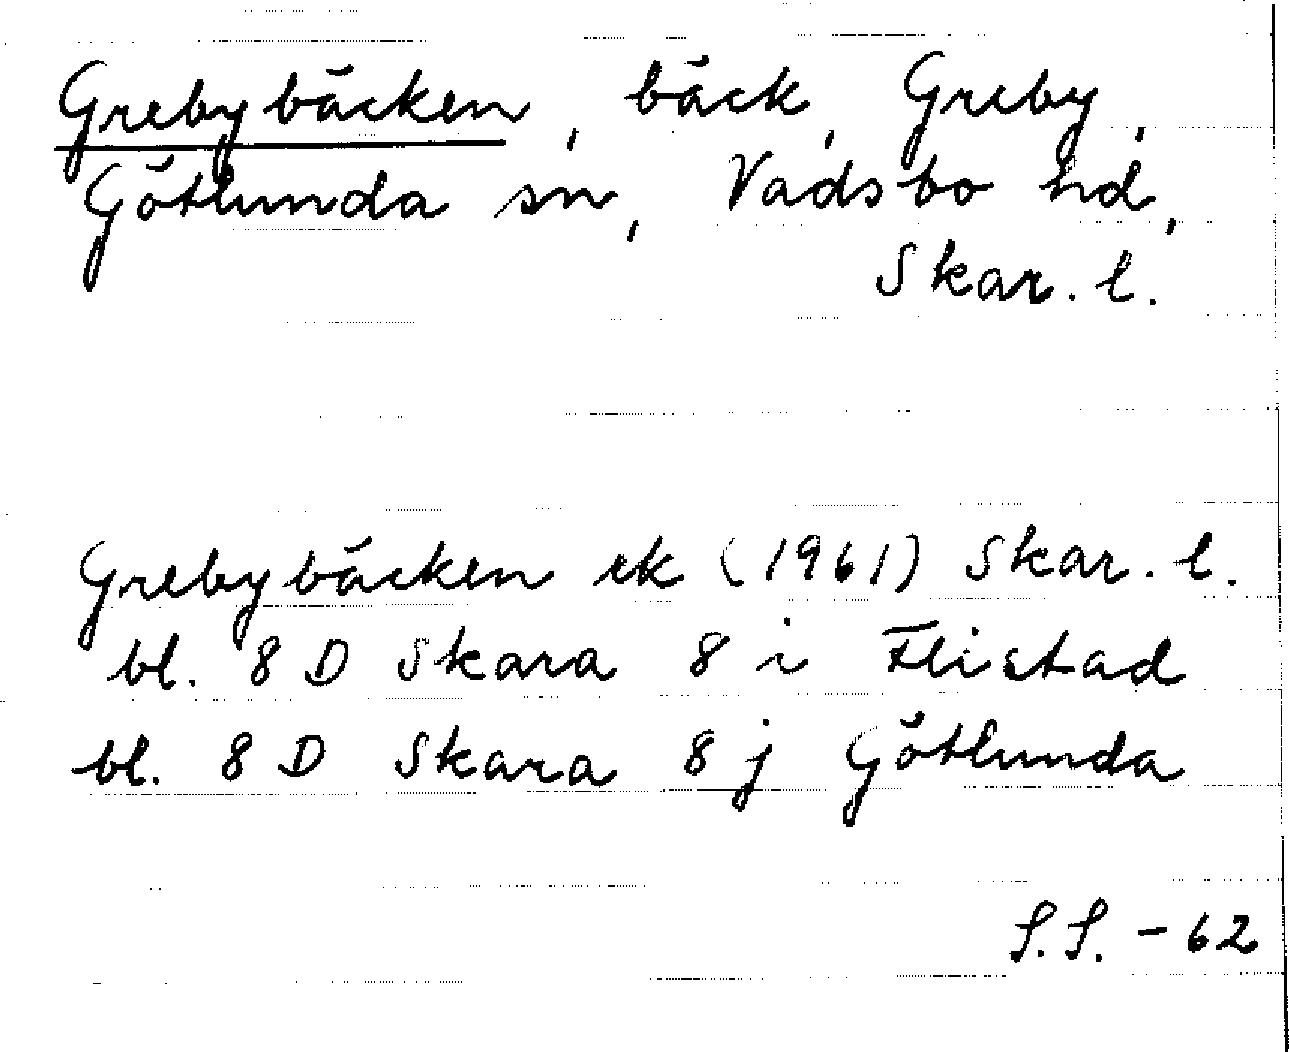 Grebybäcken, bäck, Greby,
Götlunda sn, Vadsbo hd,
Skar. l.
Grebybäcken ek (1961) Skar. l.
bl. 8 D Skara 8 i Flistad
bl. 8 D Skara 8 j Götlunda
S.S. -62